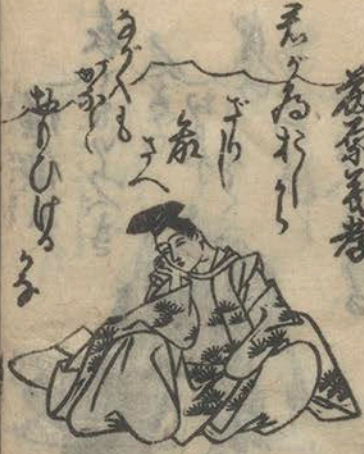 藤原義孝
君が為おしから
ざりし
命
さへ
ながくも
がなと
おもひける
かな